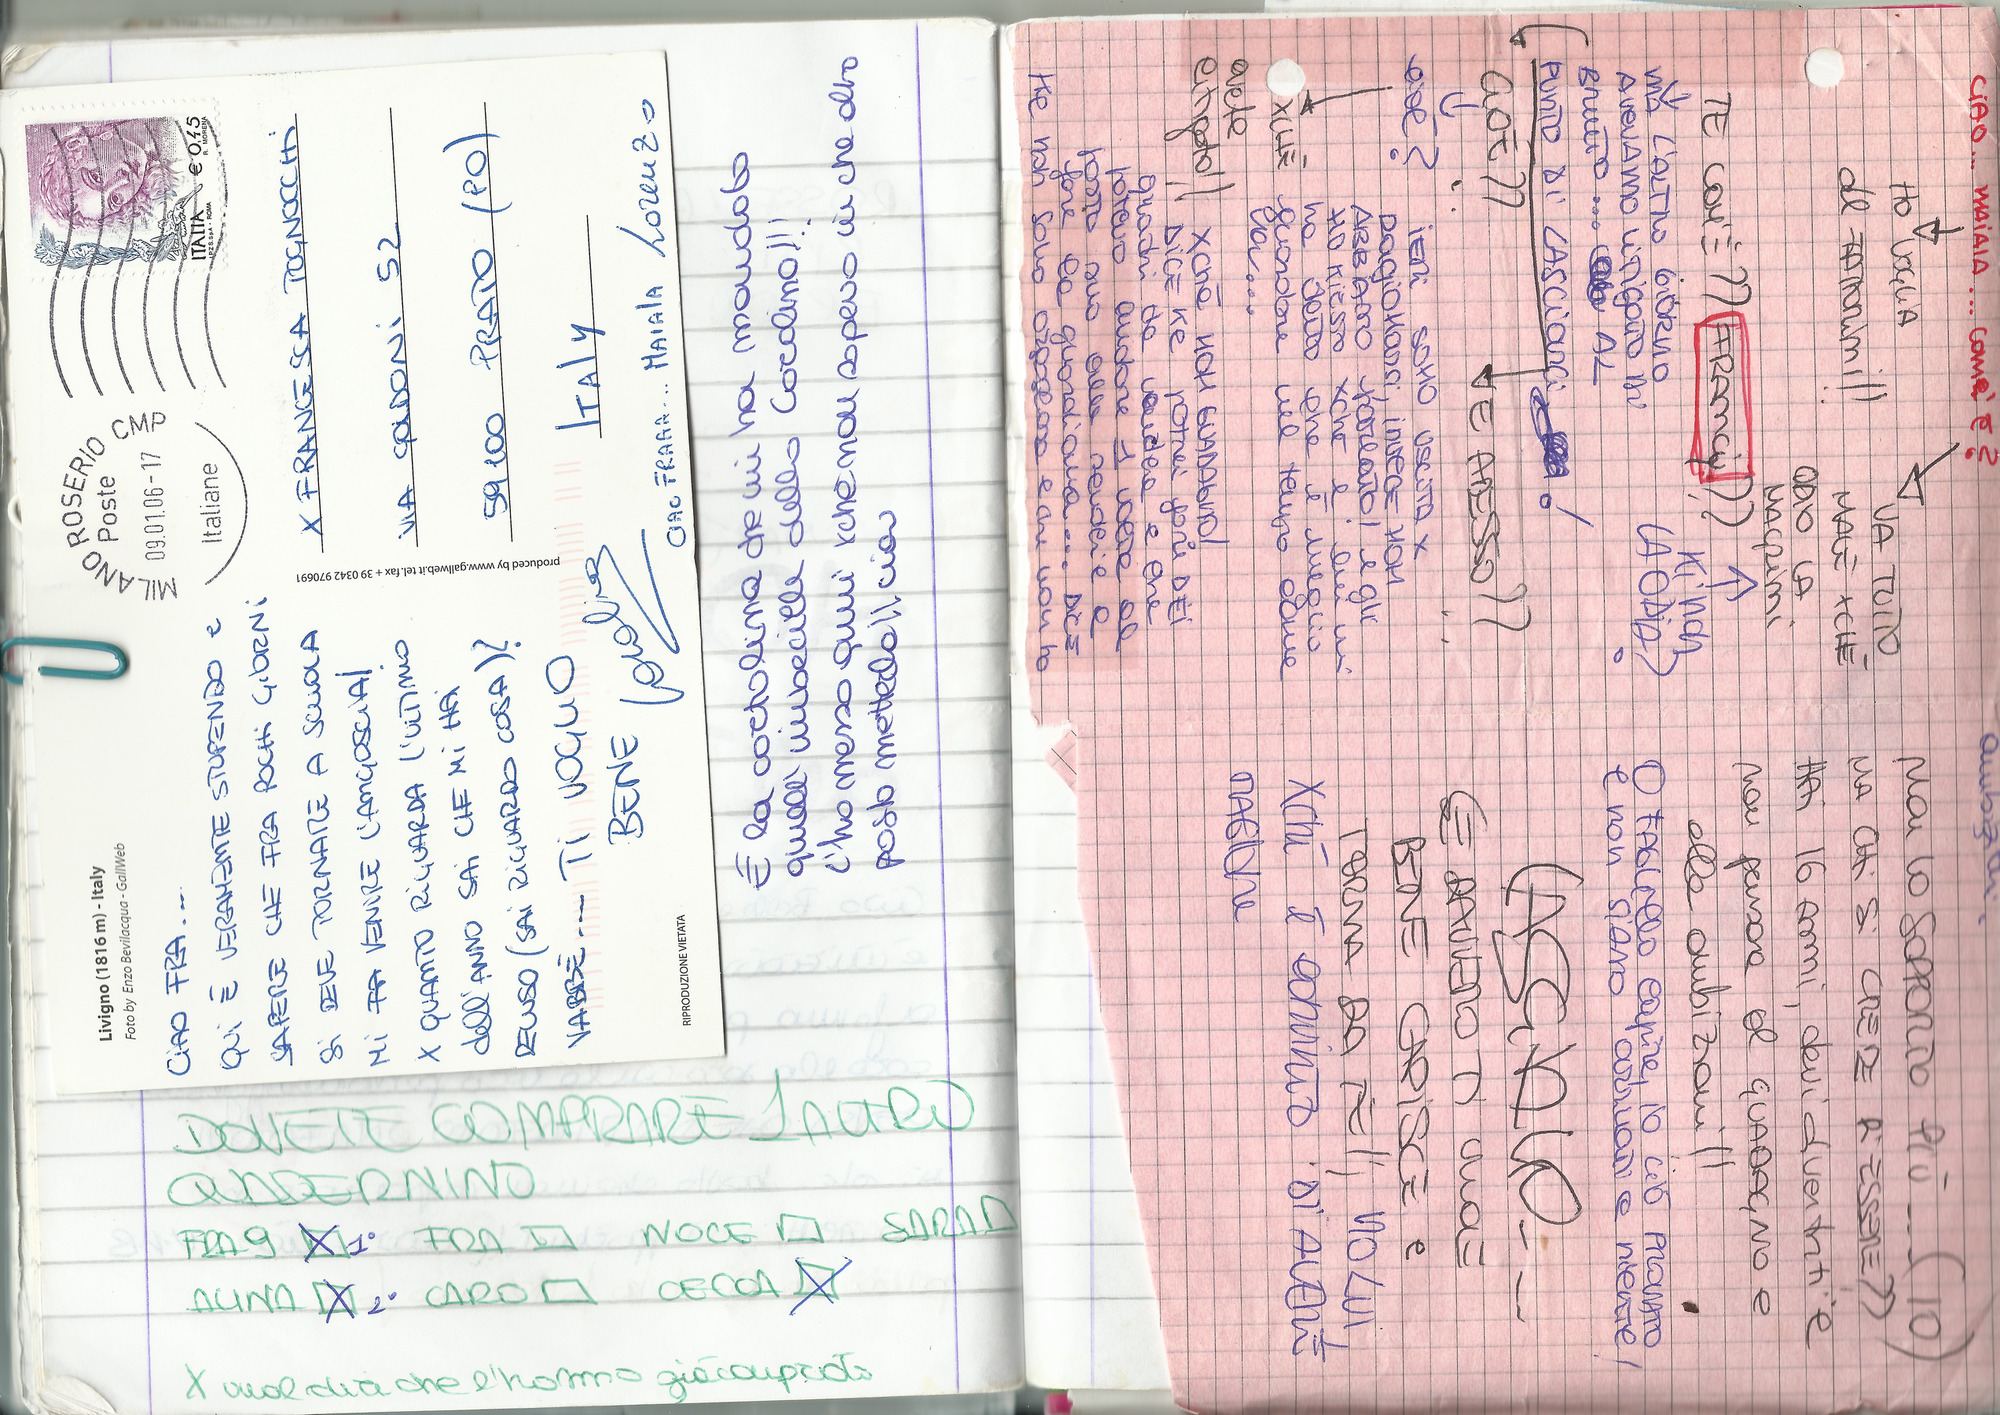 Livigno (1816 m) - Italy
Foto by Enzo Bevilacqua - GallWeb
CIAO FRA....
QUI È VERAMENTE STUPENDO e
SAPERE CHE FRA POCHI GIORNI
SI DEVE TORNARE A SCUOLA
MI FA VENIRE L'ANGOSCIA!
X QUANTO RIGUARDA L'ULTIMO
dell'ANNO SAI CHE MI HA
DELUSO (SAI RIGUARDO COSA)?
VABBÈ.... TI VOGLIO
BENE
RIPRODUZIONE VIETATA
produced by www.gallweb.it tel.fax + 39 0342 970691
ITALIA € 0,45
R. MORENA
I.P.Z.S. S.p.A. - ROMA
MILANO ROSERIO CMP
Poste
09.01.06-17
Italiane
X FRANCESCA TOGNOCCHI
VIA GOLDONI 52
59100 PRATO (PO)
ITALY
CIAO FRAAA... MAIALA LORENZO
È la cartolina che mi ha mandato
quell' imbecille dello Carolino!!!
L'ho messo qui xchè non sapevo in che altro
posto metterla!! ciao
DOVETE COMPRARE 1 ALTRO
QUADERNINO
FRA9 1° FRA NOCE SARA
ALINA 2° CARO CECCA
X vuol dire che l'hanno già comprato
CIAO... MAIALA... COM'È?
HO VOGLIA
di FARRIMI!!
VA TUTTO
MALE XCHÈ
ODIO LA
MACRIMI
TE COM'È?? (FRANCY)??
KINDY
(AODIA)
MA L'ALTRO GIORNO
AVEVAMO LITIGATO DI
BRUTTO... AL
PUNTO DI LASCIARCI!
CIOÈ??
VE ADESSO??
CIOÈ?
IERI SONO USCITA X
RAGIONARCI, INVECE NON
ABBIAMO parlato! e gli
HO KIESTO XCHÈ e lui mi
ha detto che è meglio
XCHÈ guardare nel tempo come
va....
avete
litigato!! XCHÈ NON GUADAGNO!
DICE KE potrei fare DEI
quadri da vendere e che
potevo andare 1 volta al
posto suo alla vendere a
fare la guardiana... DICE
KE non sono orgogliosa e che non lo
Non lo SOPPORTO PIÙ.... (10)
MA CHI SI CREDE D'ESSERE??
HAI 16 anni, devi divertirti e
non pensare al guadagno e
alle ambizioni!!
O FAGLIELO capire, lo ciò PROVATO
e non siamo arrivati a niente!
LASCIALO....
SE DAVVERO TI vuole
BENE CAPISCE e
TORNA DA TE!!, NO LUI
XCHÈ È convinto DI AVERE
RAGIONE
ambizioni.